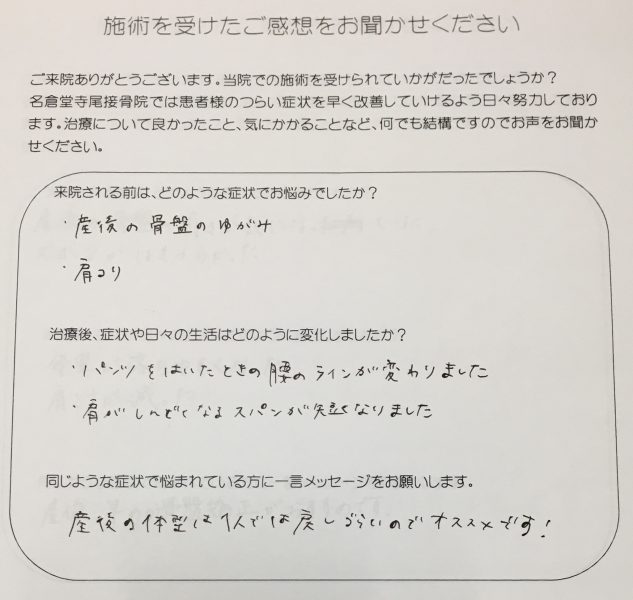 施術を受けたご感想をお聞かせください
ご来院ありがとうございます。当院での施術を受けられていかがだったでしょうか？
名倉堂寺尾接骨院では患者様のつらい症状を早く改善していけるよう日々努力しており
ます。治療について良かったこと、気にかかることなど、何でも結構ですのでお声をお聞か
せください。
来院される前は、どのような症状でお悩みでしたか？
・産後の骨盤のゆがみ
・肩コリ
治療後、症状や日々の生活はどのように変化しましたか？
・パンツをはいたときの腰のラインが変わりました
・肩がしんどくなるスパンが短くなりました
同じような症状で悩まれている方に一言メッセージをお願いします。
産後の体型は1人では戻しづらいのでオススメです！